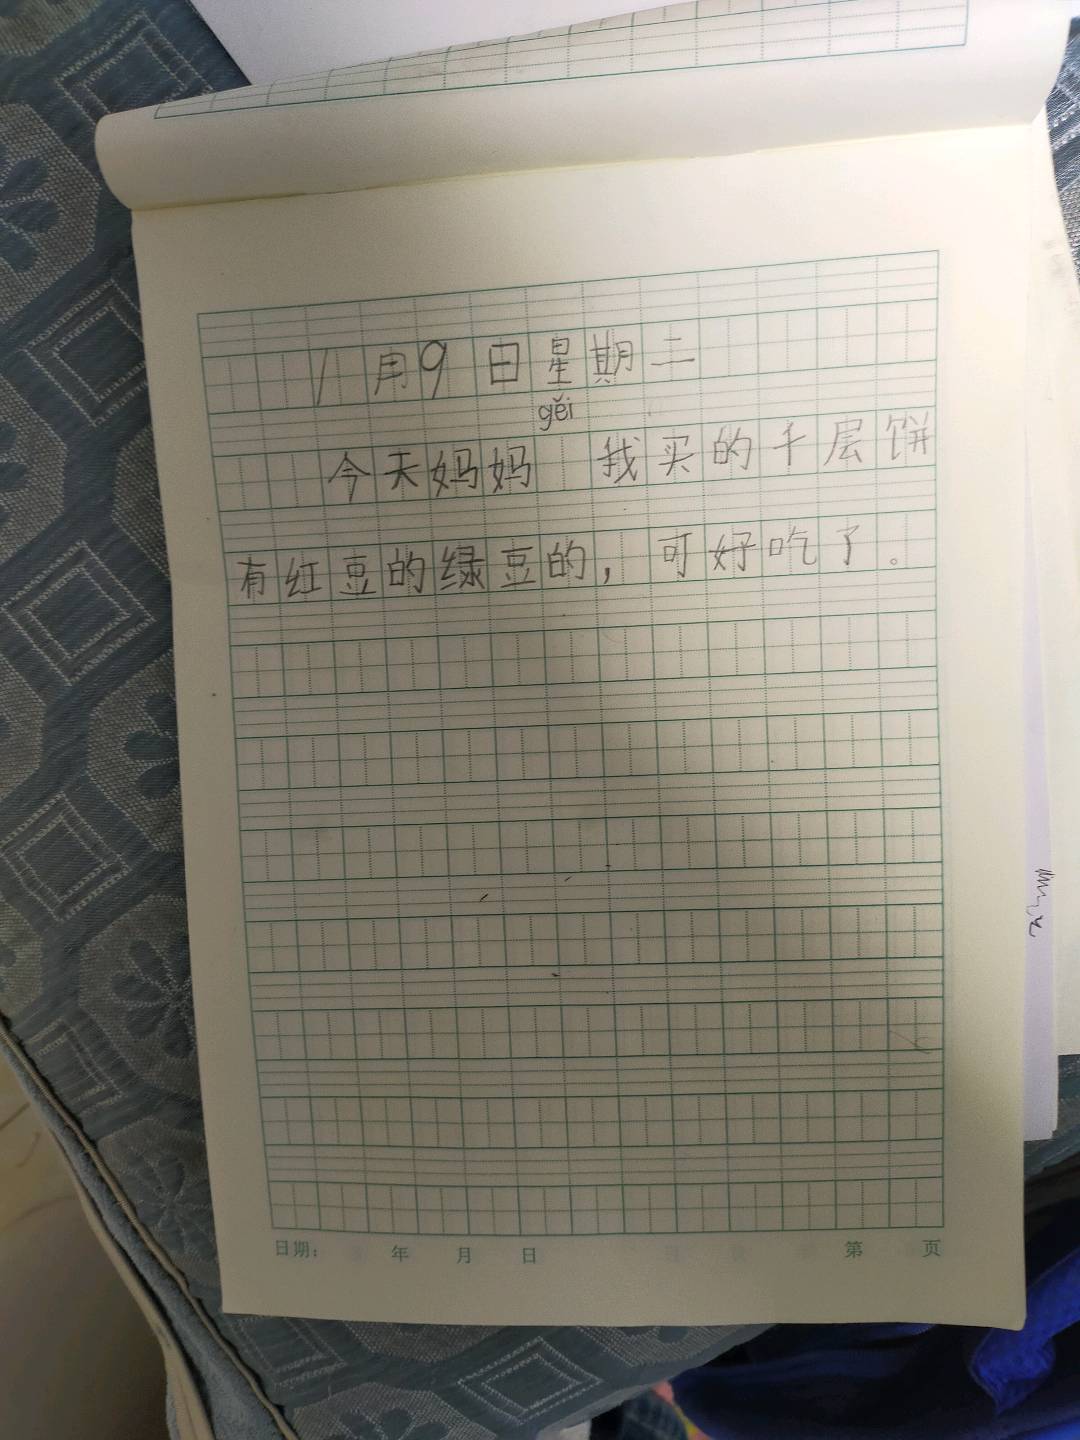 1月9日星期二
gěi
今天妈妈 我买的千层饼
有红豆的绿豆的，可好吃了。
日期： 年 月 日 第 页